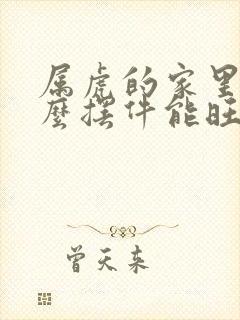 属虎的家里
麼摆件能旺
曾天来